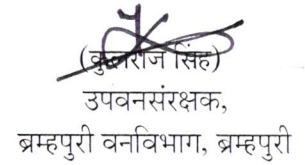 (कुलराज सिंह)
उपवनसंरक्षक,
ब्रम्हपुरी वनविभाग, ब्रम्हपुरी